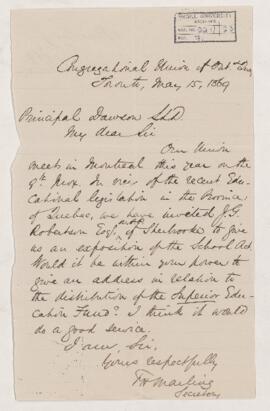 McGILL UNIVERSITY
ARCHIVES
ACC. NO.
REF.
Congregational Union of Ont. &
Toronto, May 15, 1869
Principal Dawson LLD.
My dear Sir
Our Union
meets in Montreal this year on the
9th prox. In view of the recent Edu-
cational legislation in the Province
of Quebec, we have invited J.G.
Robertson Esq. of Sherbrooke to give
us an exposition of the School Act
Would it be within your power to
give an address in relation to
the distribution of the Superior Edu-
cation Fund? I think it would
do a good service.
I am, Sir,
Yours respectfully
Secretary